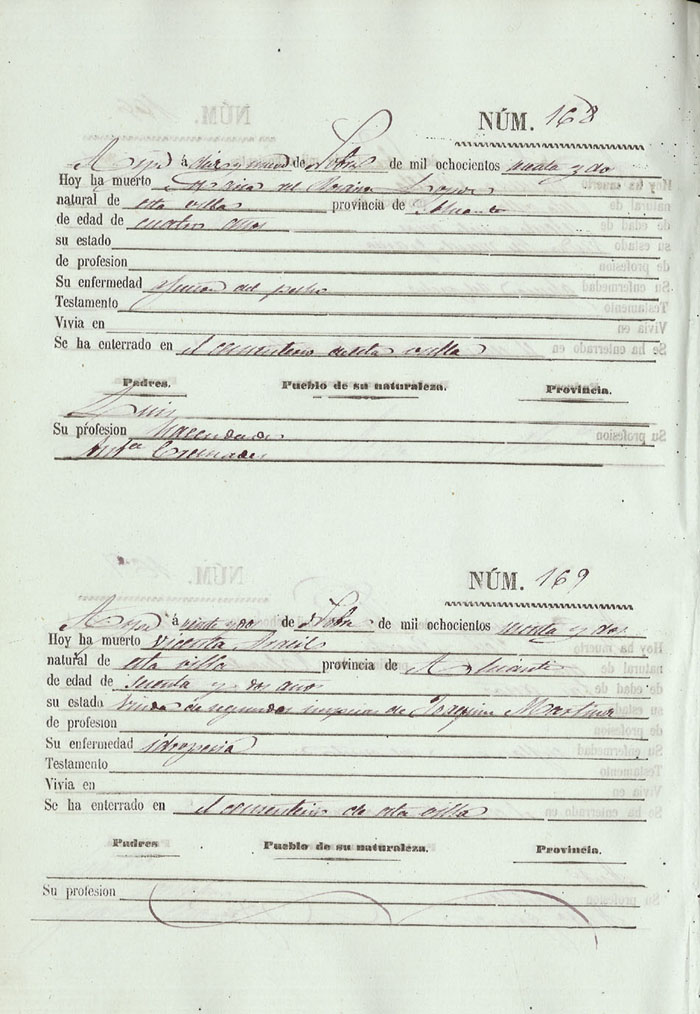 NÚM. 168
á diez y nueve de de mil ochocientos y dos
Hoy ha muerto Maria del Rosario
natural de esta villa provincia de Alicante
de edad de cuatro años
su estado
de profesion
Su enfermedad del pecho
Testamento
Vivia en
Se ha enterrado en el cementerio de esta villa
Padres. Pueblo de su naturaleza. Provincia.
Luis
Su profesion Hacendado
NÚM. 169
á veinte y dos de de mil ochocientos y dos
Hoy ha muerto Vicenta
natural de esta villa provincia de Alicante
de edad de y dos años
su estado Viuda de segundas nupcias de Joaquin Martinez
de profesion
Su enfermedad idropesia
Testamento
Vivia en
Se ha enterrado en el cementerio de esta villa
Padres Pueblo de su naturaleza. Provincia.
Su profesion